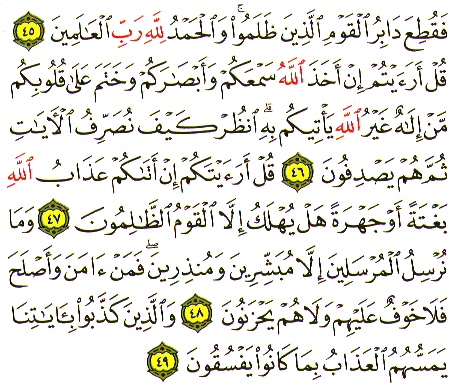 فَقُطِعَ دَابِرُ الْقَوْمِ الَّذِينَ ظَلَمُوا۟ ۚ وَالْحَمْدُ لِلَّهِ رَبِّ الْعَٰلَمِينَ ٤٥
قُلْ أَرَءَيْتُمْ إِنْ أَخَذَ اللَّهُ سَمْعَكُمْ وَأَبْصَٰرَكُمْ وَخَتَمَ عَلَىٰ قُلُوبِكُم
مَّنْ إِلَٰهٌ غَيْرُ اللَّهِ يَأْتِيكُم بِهِ ۗ انظُرْ كَيْفَ نُصَرِّفُ الْءَايَٰتِ
ثُمَّ هُمْ يَصْدِفُونَ ٤٦ قُلْ أَرَءَيْتَكُمْ إِنْ أَتَىٰكُمْ عَذَابُ اللَّهِ
بَغْتَةً أَوْ جَهْرَةً هَلْ يُهْلَكُ إِلَّا الْقَوْمُ الظَّٰلِمُونَ ٤٧ وَمَا
نُرْسِلُ الْمُرْسَلِينَ إِلَّا مُبَشِّرِينَ وَمُنذِرِينَ ۖ فَمَنْ ءَامَنَ وَأَصْلَحَ
فَلَا خَوْفٌ عَلَيْهِمْ وَلَا هُمْ يَحْزَنُونَ ٤٨ وَالَّذِينَ كَذَّبُوا۟ بِـَٔايَٰتِنَا
يَمَسُّهُمُ الْعَذَابُ بِمَا كَانُوا۟ يَفْسُقُونَ ٤٩